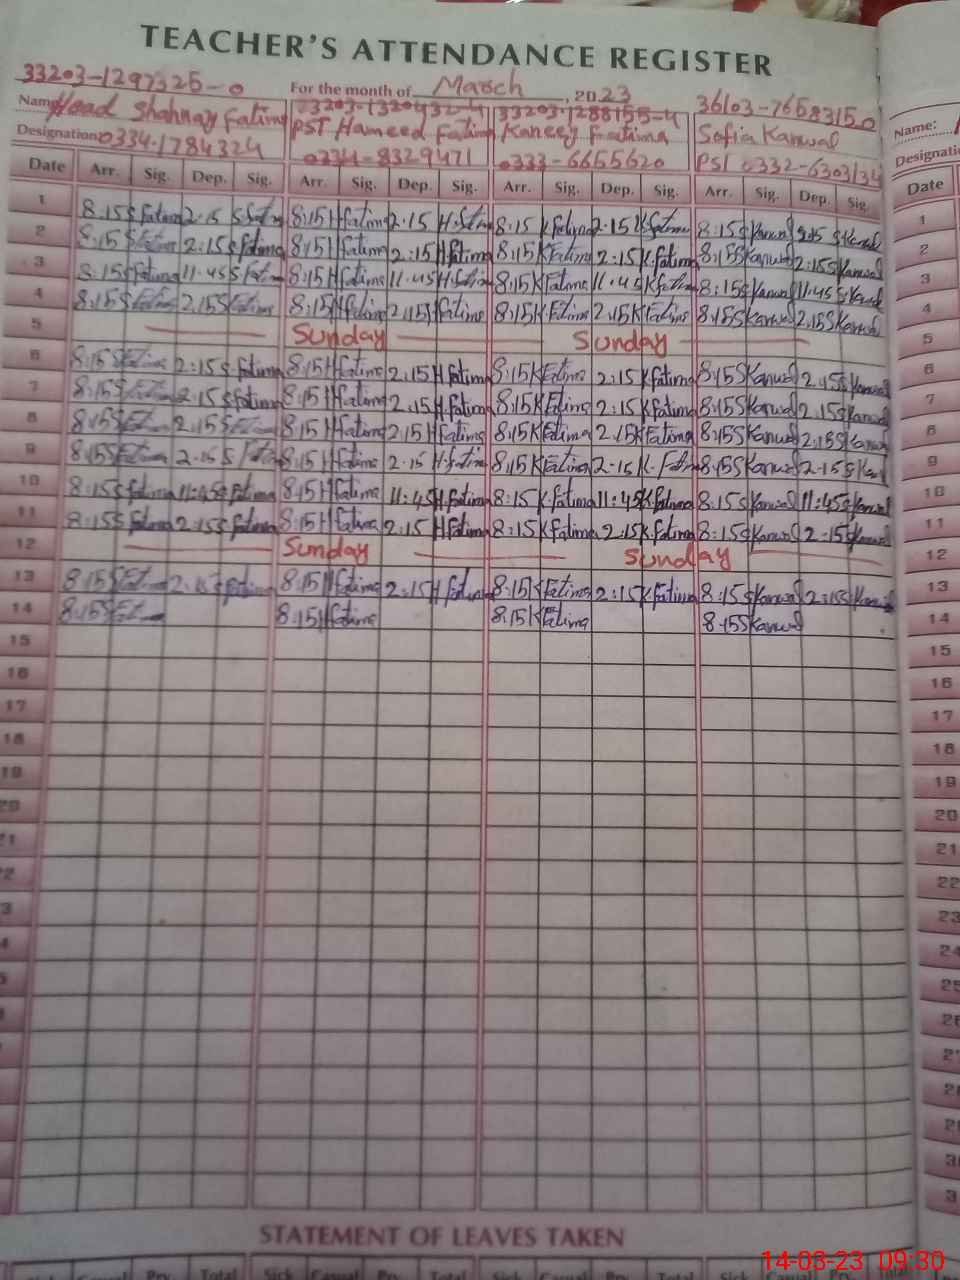 TEACHER'S ATTENDANCE REGISTER
33203-1297325-0 For the month of March, 2023
Name Head Shahnaz Fatima 33203-1320432-4 33203-1288155-4 36103-7658315-0 Name:
PST Hameed Fatima Kaneez Fatima Sofia Kanwal
Designation 0334-1784324 0334-8329471 0333-6655620 PST 0332-6303134
Date Arr. Sig. Dep. Sig. Arr. Sig. Dep. Sig. Arr. Sig. Dep. Sig. Arr. Sig. Dep. Sig. Date
1 8:15 S Fatima 2:15 S Fatima 8:15 H Fatima 2:15 H Fatima 8:15 K Fatima 2:15 K Fatima 8:15 S Kanwal 2:15 S Kanwal 1
2 8:15 S Fatima 2:15 S Fatima 8:15 H Fatima 2:15 H Fatima 8:15 K Fatima 2:15 K Fatima 8:15 S Kanwal 2:15 S Kanwal 2
3 8:15 S Fatima 11:45 S Fatima 8:15 H Fatima 11:45 H Fatima 8:15 K Fatima 11:45 K Fatima 8:15 S Kanwal 11:45 S Kanwal 3
4 8:15 S Fatima 2:15 S Fatima 8:15 H Fatima 2:15 H Fatima 8:15 K Fatima 2:15 K Fatima 8:15 S Kanwal 2:15 S Kanwal 4
5 Sunday Sunday 5
6 8:15 S Fatima 2:15 S Fatima 8:15 H Fatima 2:15 H Fatima 8:15 K Fatima 2:15 K Fatima 8:15 S Kanwal 2:15 S Kanwal 6
7 8:15 S Fatima 2:15 S Fatima 8:15 H Fatima 2:15 H Fatima 8:15 K Fatima 2:15 K Fatima 8:15 S Kanwal 2:15 S Kanwal 7
8 8:15 S Fatima 2:15 S Fatima 8:15 H Fatima 2:15 H Fatima 8:15 K Fatima 2:15 K Fatima 8:15 S Kanwal 2:15 S Kanwal 8
9 8:15 S Fatima 2:15 S Fatima 8:15 H Fatima 2:15 H Fatima 8:15 K Fatima 2:15 K Fatima 8:15 S Kanwal 2:15 S Kanwal 9
10 8:15 S Fatima 11:45 S Fatima 8:15 H Fatima 11:45 H Fatima 8:15 K Fatima 11:45 K Fatima 8:15 S Kanwal 11:45 S Kanwal 10
11 8:15 S Fatima 2:15 S Fatima 8:15 H Fatima 2:15 H Fatima 8:15 K Fatima 2:15 K Fatima 8:15 S Kanwal 2:15 S Kanwal 11
12 Sunday Sunday 12
13 8:15 S Fatima 2:15 S Fatima 8:15 H Fatima 2:15 H Fatima 8:15 K Fatima 2:15 K Fatima 8:15 S Kanwal 2:15 S Kanwal 13
14 8:15 S Fatima 8:15 H Fatima 8:15 K Fatima 8:15 S Kanwal 14
15 15
16 16
17 17
18 18
19 19
20 20
21
22
23
24
25
26
STATEMENT OF LEAVES TAKEN
Sick Casual Prv. Total Sick Casual Prv. Total Sick Casual Prv. Total
14-03-23 09:30